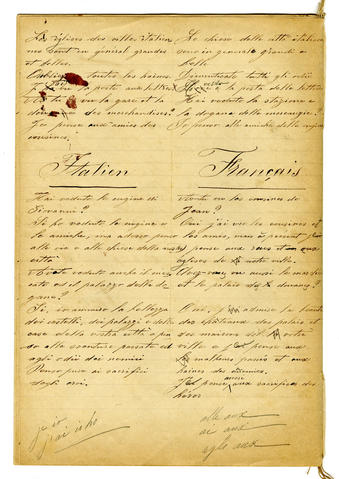 Les églises des villes italien
nes sont en général grandes
et belles.
Oubliez toutes les haines
la poste aux lettres
la gare et la
des marchandises?
Je pense aux amies des
cousines.
Le chiese delle città italiane
sono in generale grandi e
belle
Dimenticate tutti gli odii
la posta delle lettere
Hai veduto la stazione e
la dogana delle mercanzie?
Io penso alle amiche delle cugine
Italien
Français
Hai veduto le cugine di
Giovanni?
Si ho veduto le cugine e
le amiche, ma adesso penso
alle vie e alle chiese della
città
veduto anche il mer
cato ed il palazzo della do
gana?
Si, io ammiro la bellezza
dei castelli, dei palazzi e delle
case della vostra città; pen
so alle sventure passate ed
agli odii dei nemici
Penso pure ai sacrifici
degli eroi.
les cousines de
Jean?
Oui j'ai vu les cousines et
les amies, mais à présent
je pense aux rues et aux
églises de notre ville.
vu aussi le marché
et le palais de douane?
Oui, j'admire la beauté
des châteaux des palais et
des maisons de votre
ville et je pense aux
malheurs passés et aux
haines des ennemis.
Je pense aussi aux sacrifices des
héros
je io
j'ai io ho
alle aux
ai aux
agli aux